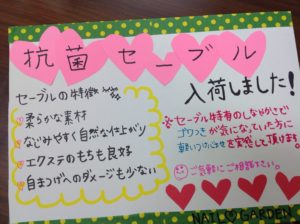 抗菌セーブル
入荷しました!
セーブルの特徴
柔らかな素材
なじみやすく自然な仕上がり
エクステのもちも良好
自まつげへのダメージも少ない
セーブル特有のしなやかさで
ゴワつきが気になっていた方に
を実感して頂けます。
お気軽にご相談下さい。
NAIL'S GARDEN